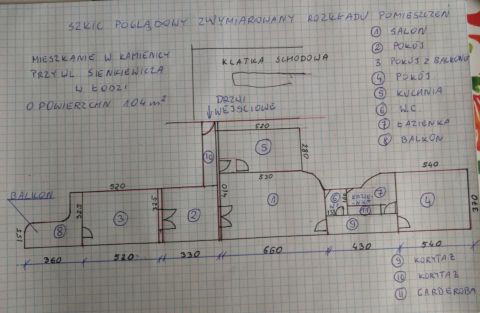 SZKIC POGLĄDOWY ZWYMIAROWANY ROZKŁADU POMIESZCZEŃ
MIESZKANIE W KAMIENICY
PRZY UL SIENKIEWICZA
W ŁODZI
O POWIERZCHN 104 m²
KLATKA SCHODOWA
DRZWI
WEJŚCIOWE
1 SALON
2 POKÓJ
3 POKÓJ Z BALKONU
4 POKÓJ
5 KUCHNIA
6 W.C.
7 ŁAZIENKA
8 BALKON
520
5
280
10
BALKON
520
325
3
325
2
410
520
1
6
7
11
9
540
4
370
155
8
360
520
330
660
430
540
9 KORYTAŻ
10 KORYTAŻ
11 GARDEROBA